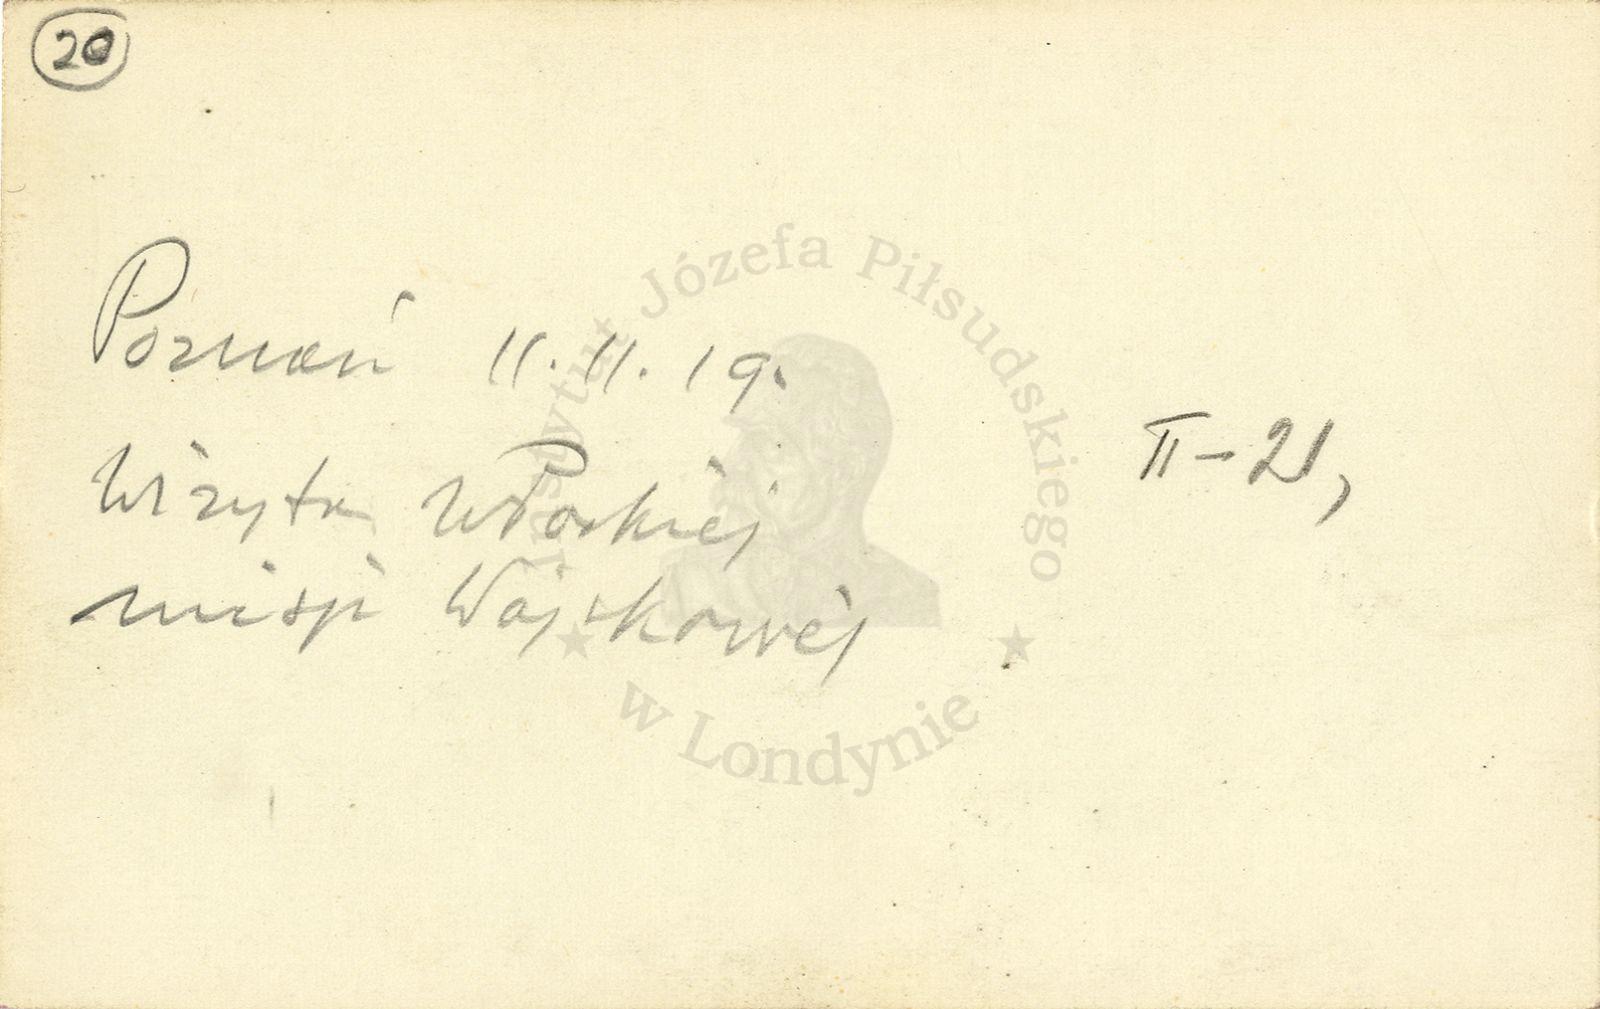 20
Poznań 11.11.19.
II-21,
Wizyta Włoskiej
misji Wojskowej
Instytut Józefa Piłsudskiego
w Londynie